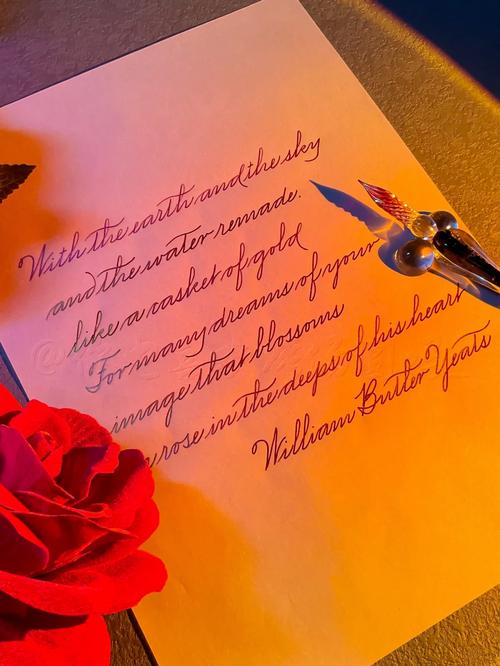 With the earth and the sky
and the water remade.
like a casket of gold
For many dreams of your
image that blossoms
rose in the deeps of his heart
William Butler Yeats